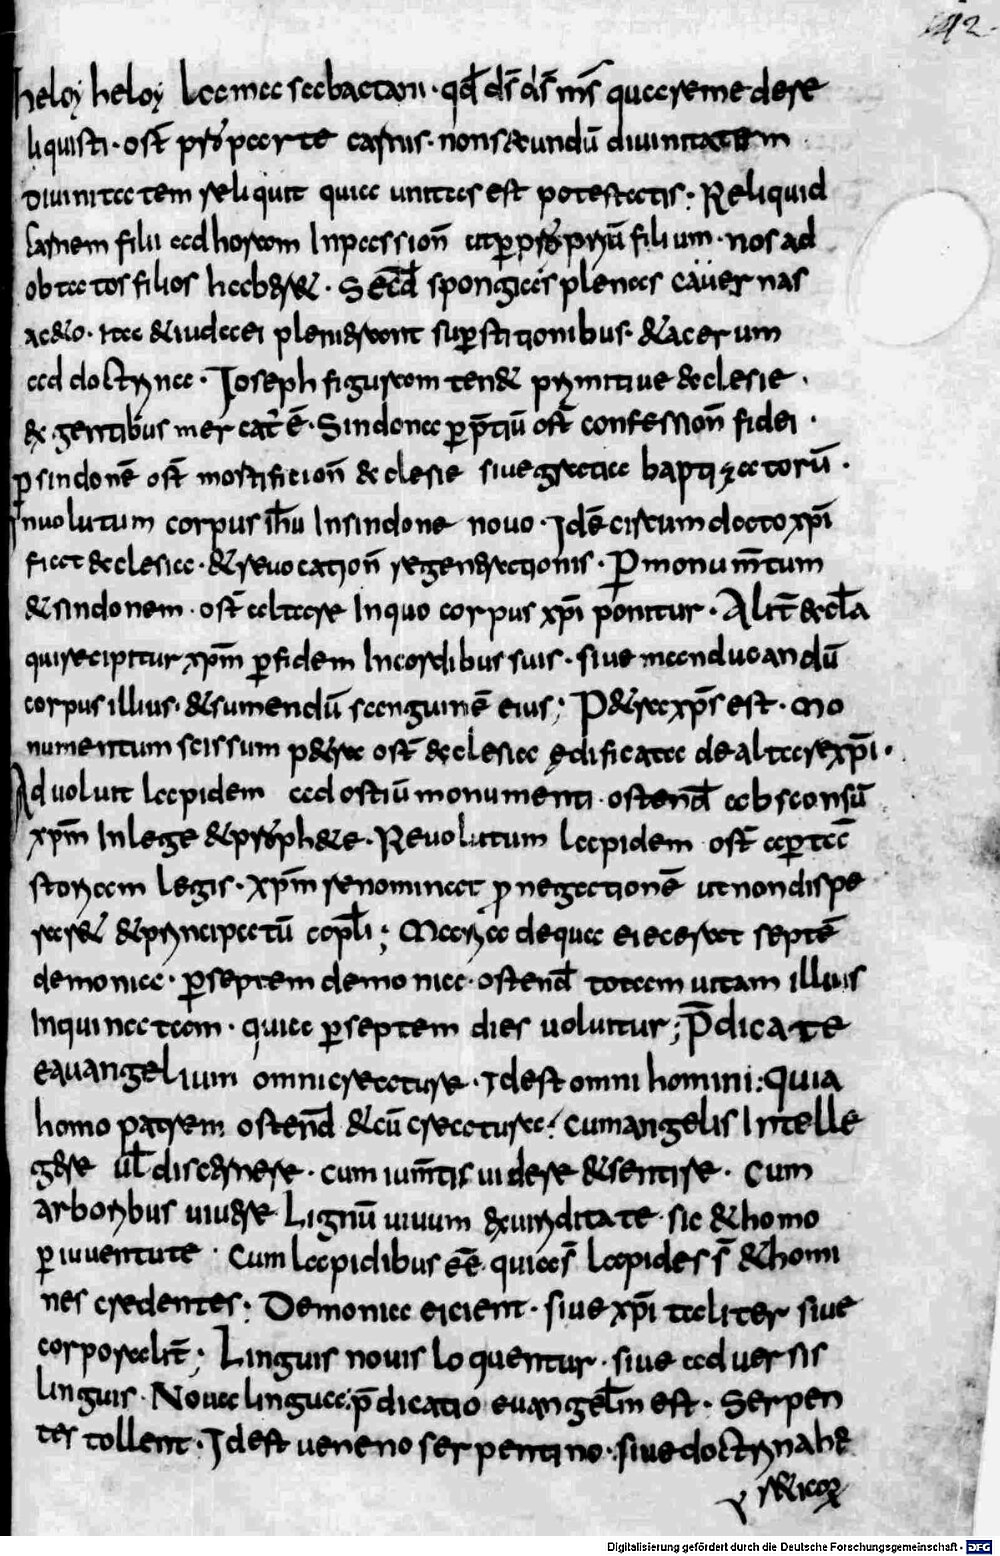 142.
heloy heloy lama sabactani · qd̄ ds̄ ds̄ ms̄ quare me dere
liquisti · ost̄ pro parte carnis · non secundū divinitatem
Divinitatem reliquit quia unitas est potestatis; Reliquid
carnem filii ad horam In passioñ ut ꝑ propriū filium · nos ad
obtatos filios haberet · Secd̄ spongias plenas cavernas
aceto · ita et iudaei pleni erant suꝑstitionibus · et acerum
ad doctrina · Ioseph figuram tenet primitive eclesie ·
ex gentibus mercat̄ ē · Sindone ꝑ p̄tiū ost̄ confessioñ fidei ·
ꝑ sindonē ost̄ mortificioñ eclesie sive gratia baptizatorū ·
Involutum corpus ih̄u In sindone novo · Idē circumdato xp̄i
fiat eclesia · et revocatioñ regenerationis · ꝑ monum̄tum
et sindonem · ost̄ altare In quo corpus xp̄i ponitur · Alit̄ eccl̄a
qui recipitur xp̄m ꝑ fidem In cordibus suis · sive manducandū
corpus illius · et sumendū sanguinē eius; Petra xp̄s est · Mo
numentum scissum petra ost̄ eclesia edificata de altare xp̄i ·
Advoluit lapidem ad ostiū monumenti · ostend̄ absconsū
xp̄m In lege et prophete · Revolutum lapidem ost̄ aꝑtā
storiam legis · xp̄m renominat ꝓ negationē ut non dispe
raret et principatū apl̄i; Maria de qua eiecerat septē
demonia · ꝑ septem demonia · ostend̄ totam vitam illius
Inquinatam · quia ꝑ septem dies voluitur; P̄dicate
eavangelium omni creature · Idest omni homini: Quia
homo patrem ostend̄ et cū creatura: cum angelis Intelle
gere ul̄ discernere · cum ium̄tis videre et sentire · Cum
arboribus vivere Lignū vivum ex viriditate sic et homo
ꝑ iuventute · Cum lapidibus eē quia s̄ lapides s̄ et homi
nes credentes; Demonia eicient · sive xp̄i taliter sive
corporalit̄; Linguis novis loquentur · sive adversis
linguis · Nova lingua: p̄dicatio evangel̄m est · Serpen
tes tollent · Idest veneno serpentino · sive doctrina he
reticoꝝ
Digitalisierung gefördert durch die Deutsche Forschungsgemeinschaft - DFG